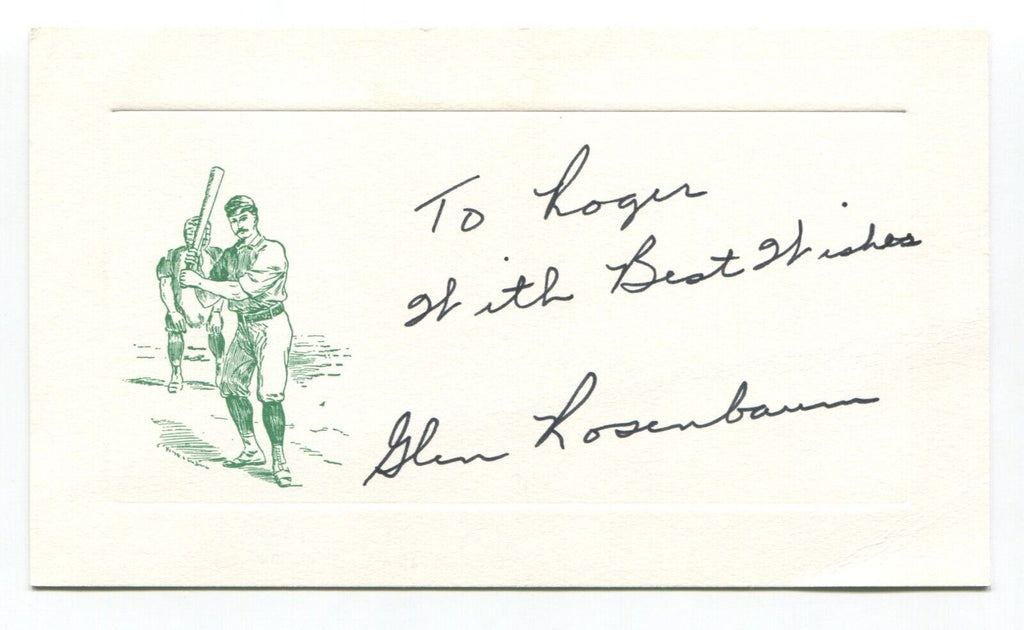 To Roger
With Best Wishes
Glen Rosenbaum